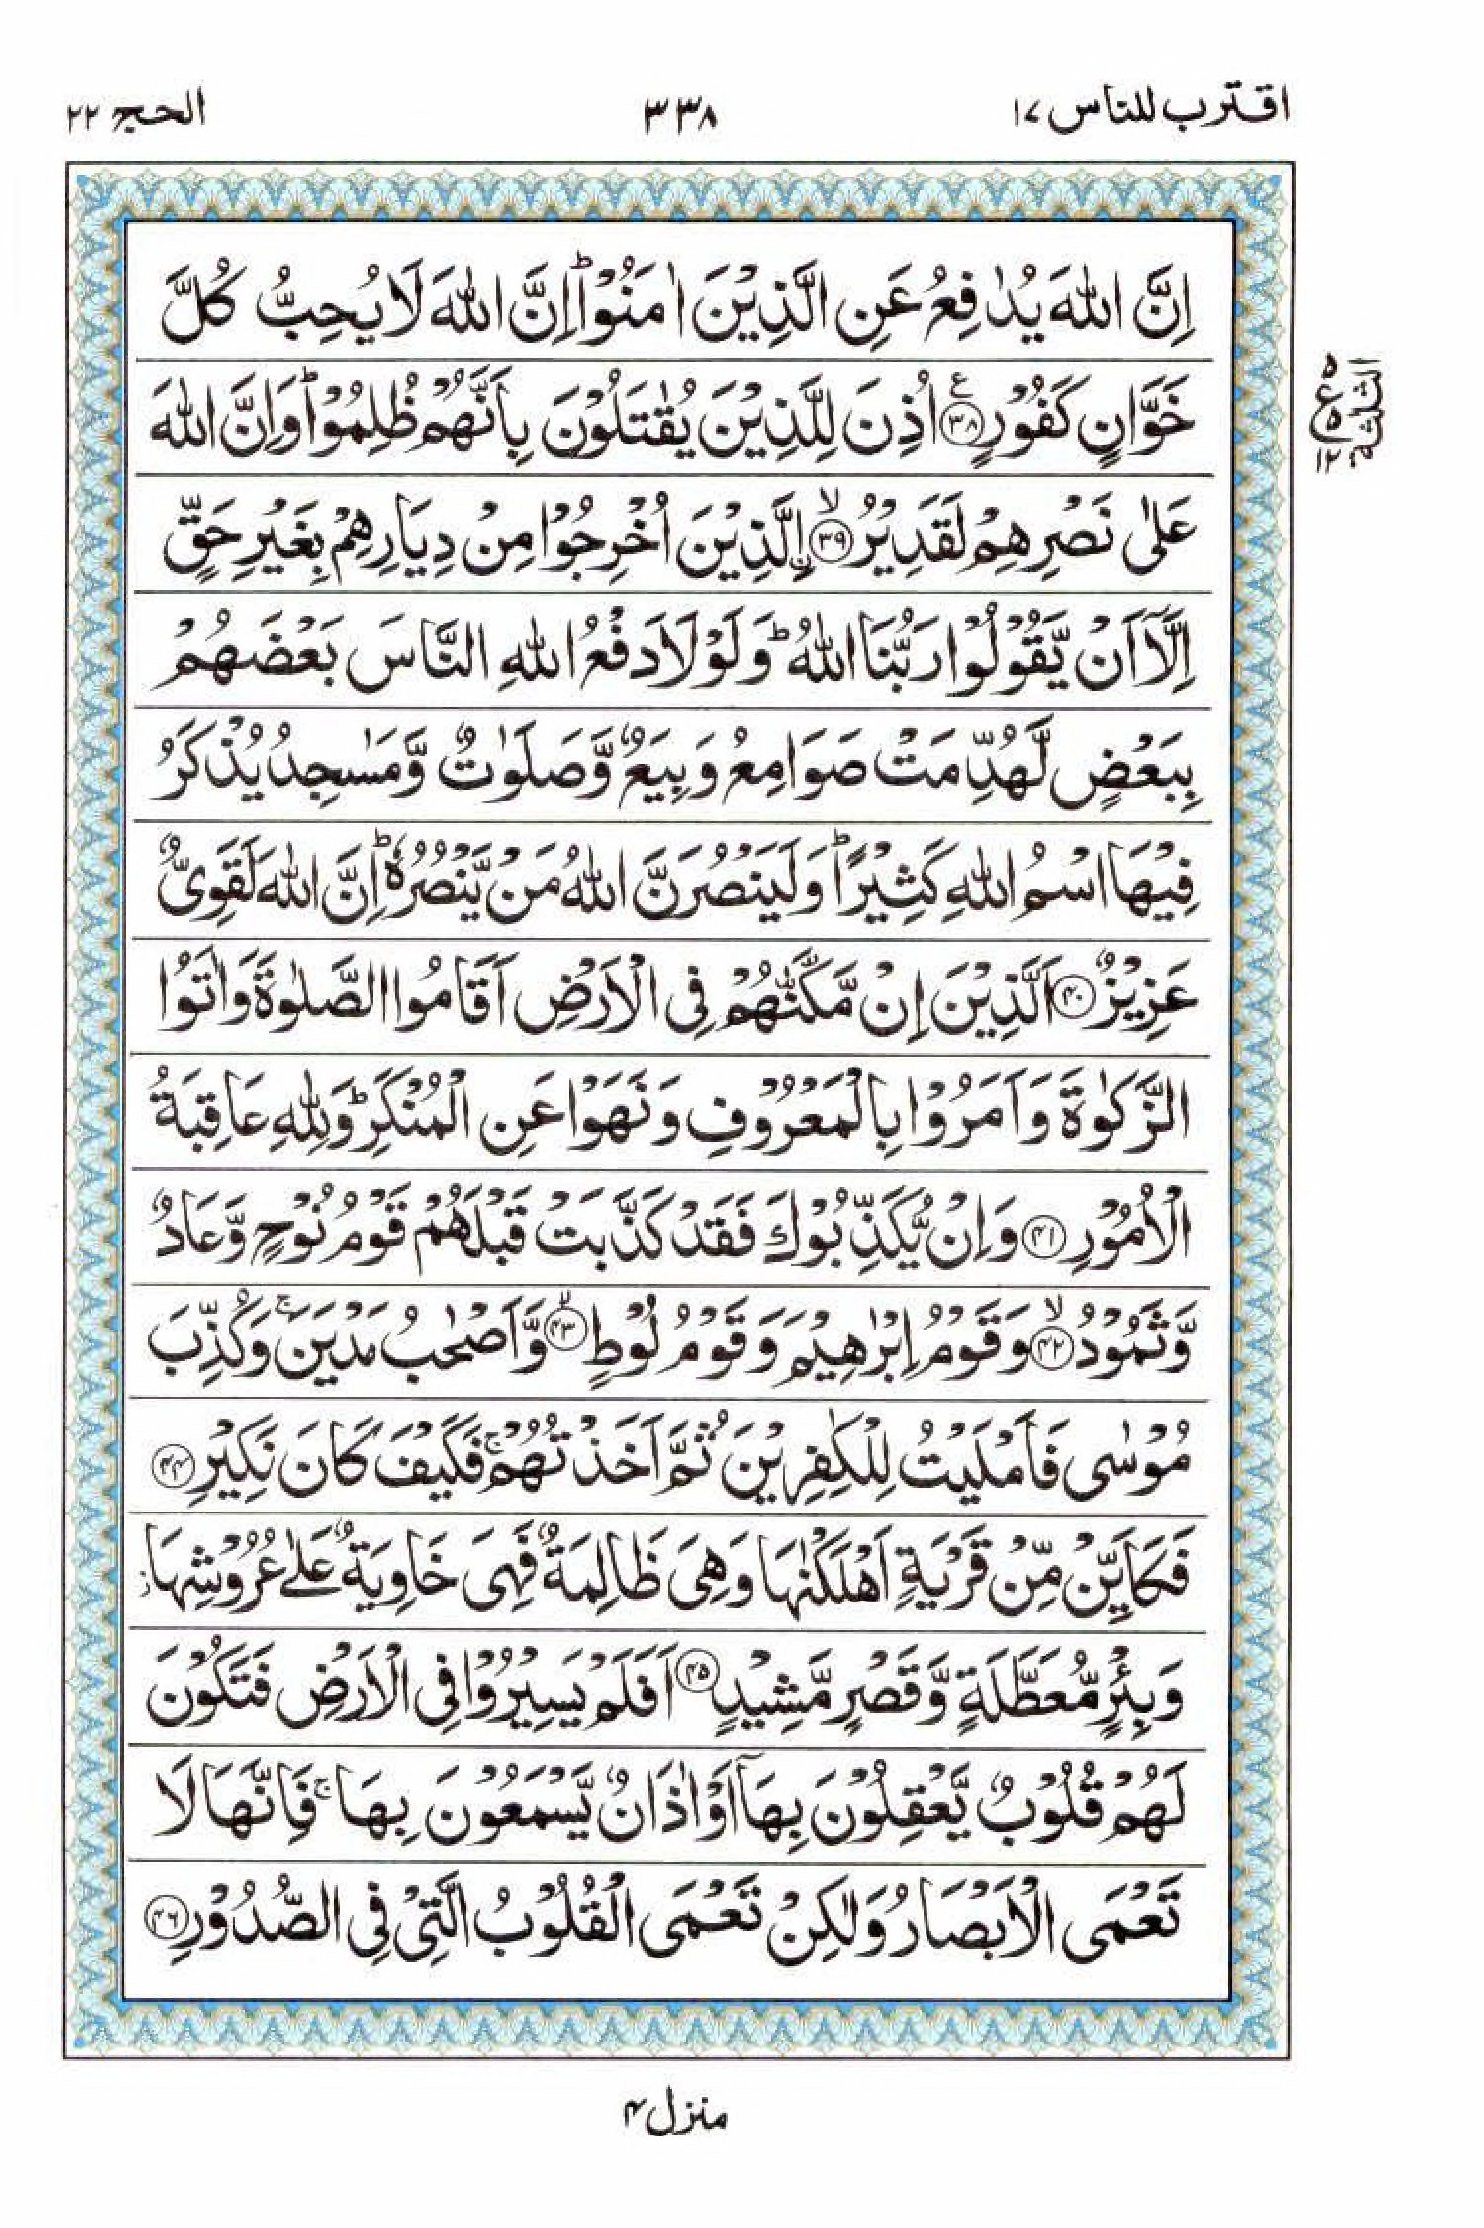 اقترب للناس ۱۷
۳۳۸
الحج ۲۲
اِنَّ اللّٰهَ يُدٰفِعُ عَنِ الَّذِيْنَ اٰمَنُوْا ؕ اِنَّ اللّٰهَ لَا يُحِبُّ كُلَّ
خَوَّانٍ كَفُوْرٍ ﴿۳۸﴾ ع اُذِنَ لِلَّذِيْنَ يُقٰتَلُوْنَ بِاَنَّهُمْ ظُلِمُوْا ؕ وَاِنَّ اللّٰهَ
عَلٰى نَصْرِهِمْ لَقَدِيْرُ ﴿۳۹﴾ ۙ اۨلَّذِيْنَ اُخْرِجُوْا مِنْ دِيَارِهِمْ بِغَيْرِ حَقٍّ
اِلَّاۤ اَنْ يَّقُوْلُوْا رَبُّنَا اللّٰهُ ؕ وَلَوْلَا دَفْعُ اللّٰهِ النَّاسَ بَعْضَهُمْ
بِبَعْضٍ لَّهُدِّمَتْ صَوَامِعُ وَبِيَعٌ وَّصَلَوٰتٌ وَّمَسٰجِدُ يُذْكَرُ
فِيْهَا اسْمُ اللّٰهِ كَثِيْرًا ؕ وَلَيَنْصُرَنَّ اللّٰهُ مَنْ يَّنْصُرُهٗ ؕ اِنَّ اللّٰهَ لَقَوِىٌّ
عَزِيْزٌ ﴿۴۰﴾ اَلَّذِيْنَ اِنْ مَّكَّنّٰهُمْ فِى الْاَرْضِ اَقَامُوا الصَّلٰوةَ وَاٰتَوُا
الزَّكٰوةَ وَاَمَرُوْا بِالْمَعْرُوْفِ وَنَهَوْا عَنِ الْمُنْكَرِ ؕ وَلِلّٰهِ عَاقِبَةُ
الْاُمُوْرِ ﴿۴۱﴾ وَاِنْ يُّكَذِّبُوْكَ فَقَدْ كَذَّبَتْ قَبْلَهُمْ قَوْمُ نُوْحٍ وَّعَادٌ
وَّثَمُوْدُ ﴿۴۲﴾ ۙ وَقَوْمُ اِبْرٰهِيْمَ وَقَوْمُ لُوْطٍ ﴿۴۳﴾ ۙ وَّاَصْحٰبُ مَدْيَنَ ۚ وَكُذِّبَ
مُوْسٰى فَاَمْلَيْتُ لِلْكٰفِرِيْنَ ثُمَّ اَخَذْتُهُمْ ۚ فَكَيْفَ كَانَ نَكِيْرِ ﴿۴۴﴾
فَكَاَيِّنْ مِّنْ قَرْيَةٍ اَهْلَكْنٰهَا وَهِىَ ظَالِمَةٌ فَهِىَ خَاوِيَةٌ عَلٰى عُرُوْشِهَا ز
وَبِئْرٍ مُّعَطَّلَةٍ وَّقَصْرٍ مَّشِيْدٍ ﴿۴۵﴾ اَفَلَمْ يَسِيْرُوْا فِى الْاَرْضِ فَتَكُوْنَ
لَهُمْ قُلُوْبٌ يَّعْقِلُوْنَ بِهَاۤ اَوْ اٰذَانٌ يَّسْمَعُوْنَ بِهَا ۚ فَاِنَّهَا لَا
تَعْمَى الْاَبْصَارُ وَلٰكِنْ تَعْمَى الْقُلُوْبُ الَّتِىْ فِى الصُّدُوْرِ ﴿۴۶﴾
۵
ع
۵
۱۲
الثلثة
منزل ۴